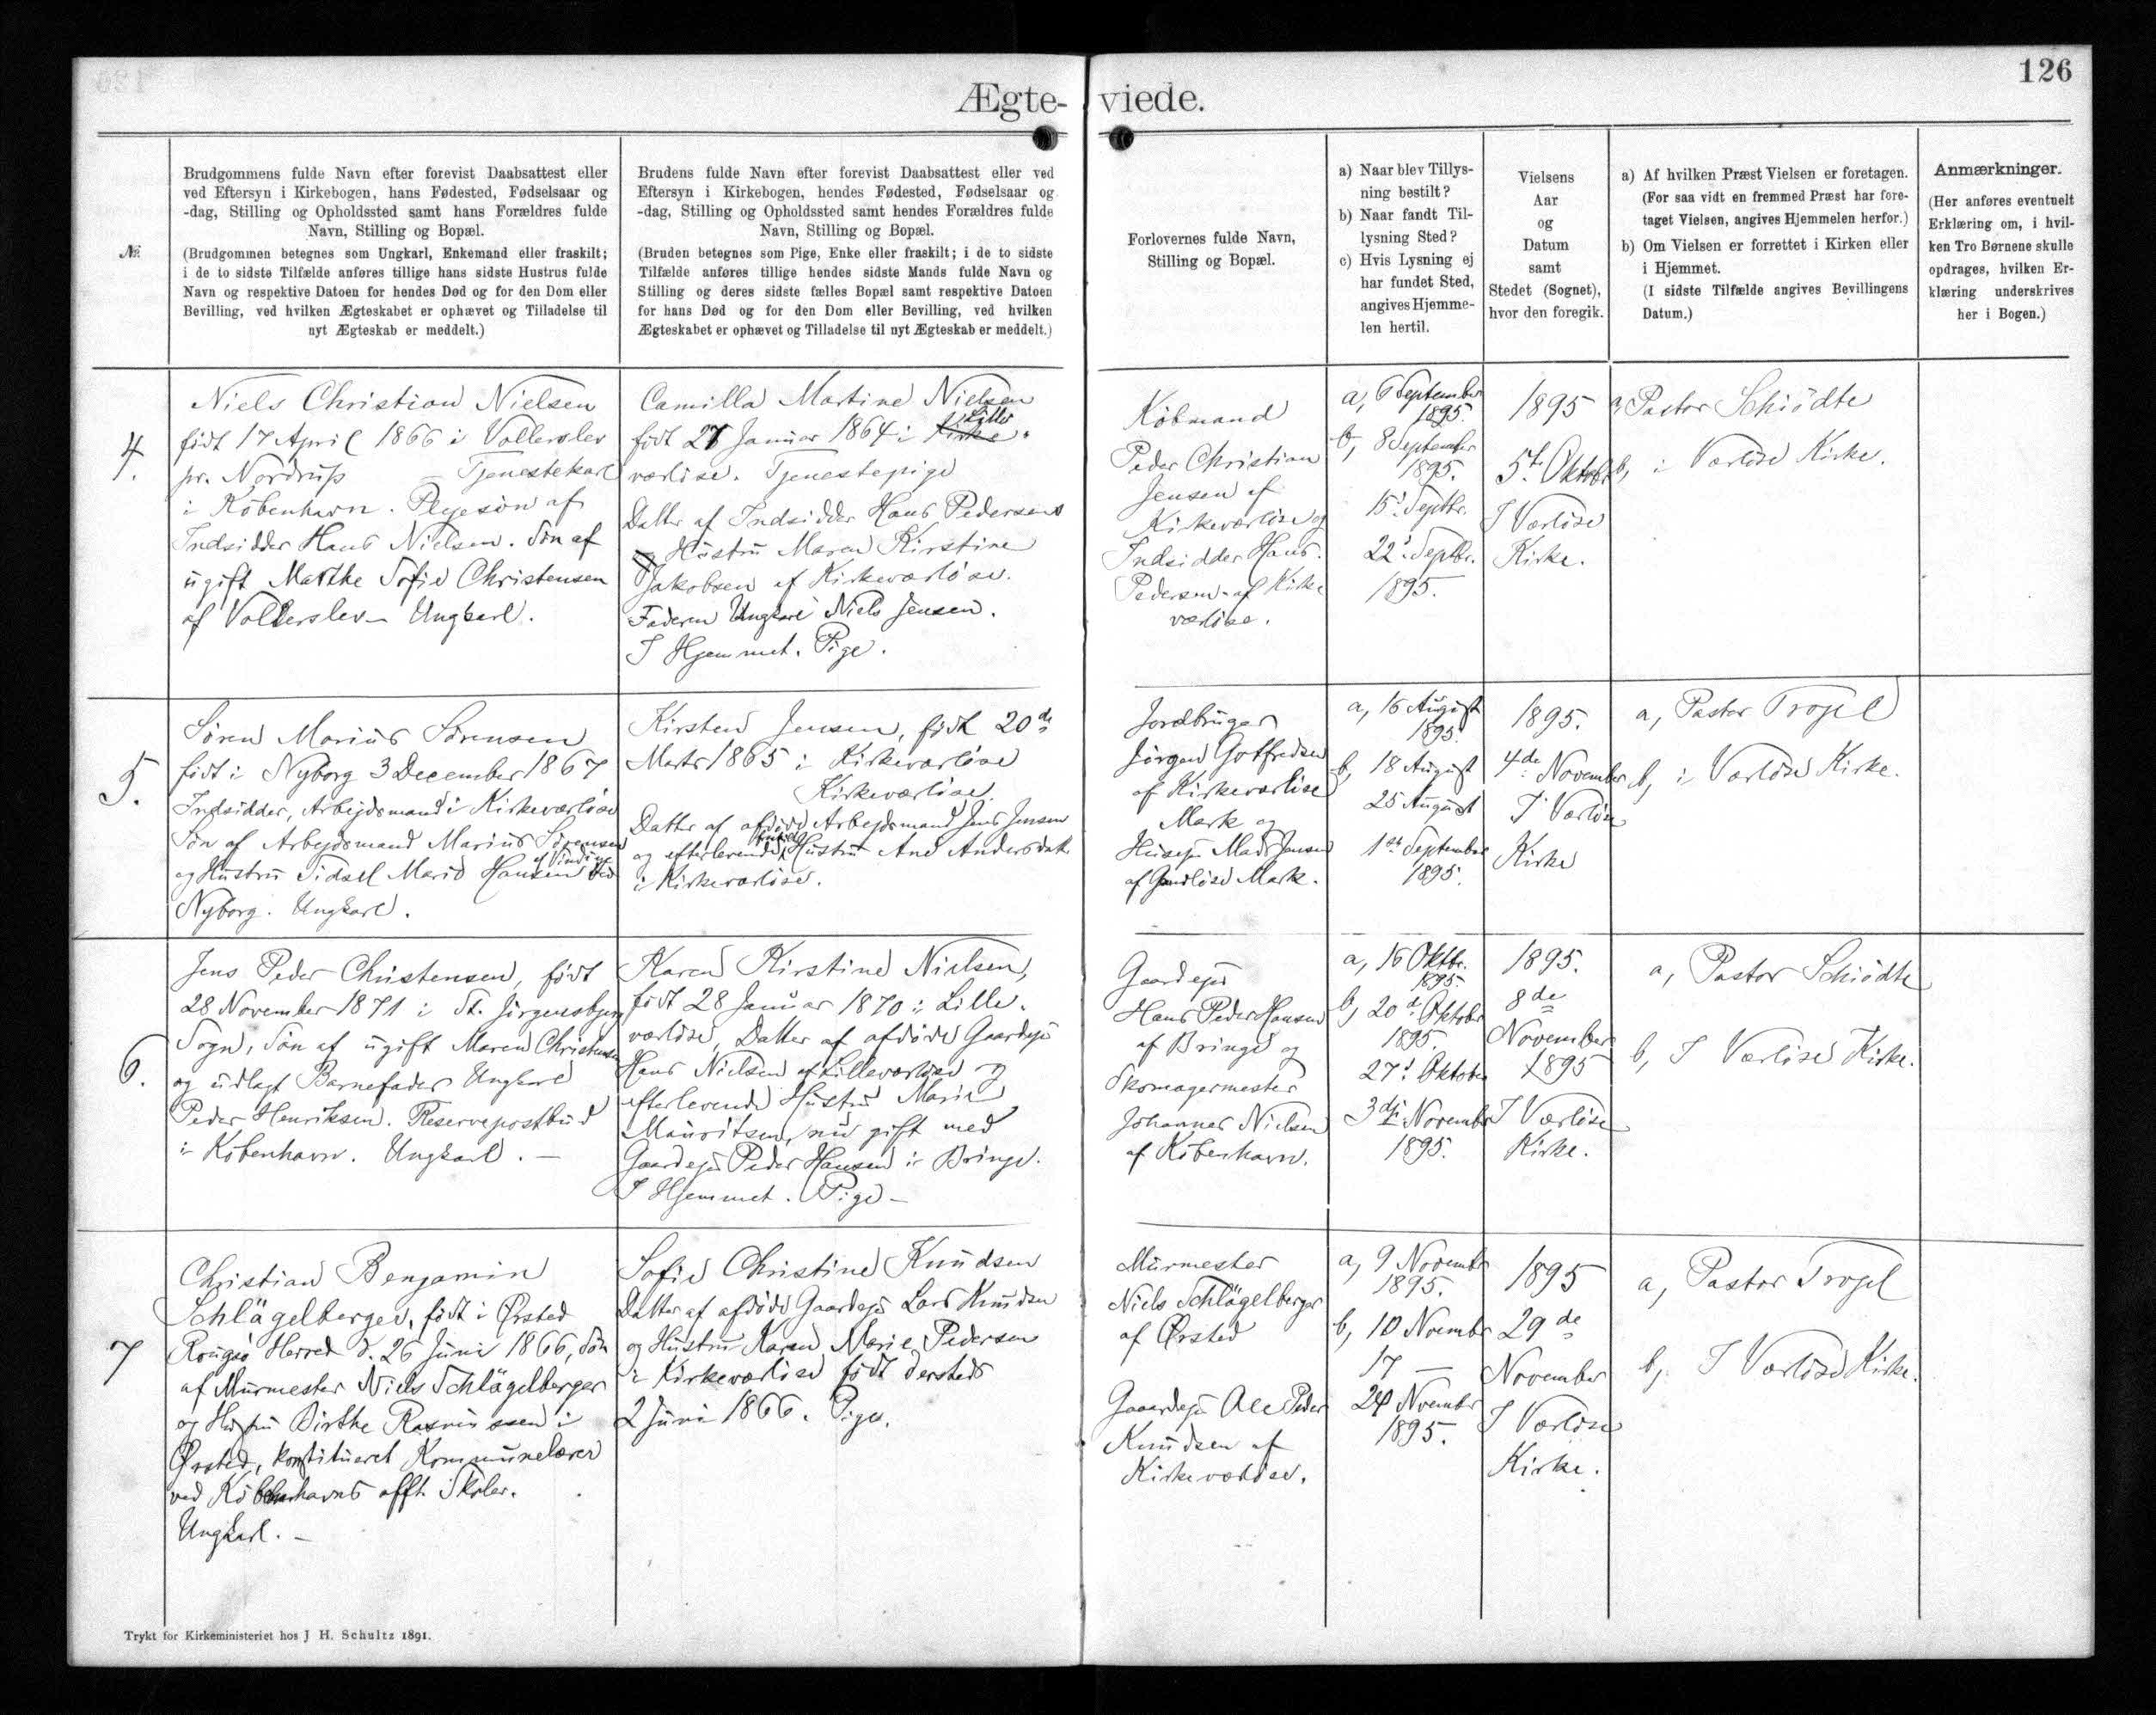 126
Ægte- viede.
№
Brudgommens fulde Navn efter forevist Daabsattest eller
ved Eftersyn i Kirkebogen, hans Fødested, Fødselsaar og
-dag, Stilling og Opholdssted samt hans Forældres fulde
Navn, Stilling og Bopæl.
(Brudgommen betegnes som Ungkarl, Enkemand eller fraskilt;
i de to sidste Tilfælde anføres tillige hans sidste Hustrus fulde
Navn og respektive Datoen for hendes Død og for den Dom eller
Bevilling, ved hvilken Ægteskabet er ophævet og Tilladelse til
nyt Ægteskab er meddelt.)
Brudens fulde Navn efter forevist Daabsattest eller ved
Eftersyn i Kirkebogen, hendes Fødested, Fødselsaar og
-dag, Stilling og Opholdssted samt hendes Forældres fulde
Navn, Stilling og Bopæl.
(Bruden betegnes som Pige, Enke eller fraskilt; i de to sidste
Tilfælde anføres tillige hendes sidste Mands fulde Navn og
Stilling og deres sidste fælles Bopæl samt respektive Datoen
for hans Død og for den Dom eller Bevilling, ved hvilken
Ægteskabet er ophævet og Tilladelse til nyt Ægteskab er meddelt.)
Forlovernes fulde Navn,
Stilling og Bopæl.
a) Naar blev Tillys-
ning bestilt?
b) Naar fandt Til-
lysning Sted?
c) Hvis Lysning ej
har fundet Sted,
angives Hjemme-
len hertil.
Vielsens
Aar
og
Datum
samt
Stedet (Sognet),
hvor den foregik.
a) Af hvilken Præst Vielsen er foretagen.
(For saa vidt en fremmed Præst har fore-
taget Vielsen, angives Hjemmelen herfor.)
b) Om Vielsen er forrettet i Kirken eller
i Hjemmet.
(I sidste Tilfælde angives Bevillingens
Datum.)
Anmærkninger.
(Her anføres eventuelt
Erklæring om, i hvil-
ken Tro Børnene skulle
opdrages, hvilken Er-
klæring underskrives
her i Bogen.)
4.
Niels Christian Nielsen
født 17 April 1866 i Vollerslev
pr. Nordrup – Tjenestekarl
i København. Plejesøn af
Indsidder Hans Nielsen. Søn af
ugift Marthe Sofie Christensen
af Vollerslev – Ungkarl.
Camilla Martine Nielsen
født 27 Januar 1864 i Kirke Lille
værløse. Tjenestepige
Datter af Indsidder Hans Pedersens
Hustru Maren Kirstine
Jakobsen af Kirkeværløse.
Faderen Ungkarl Niels Jensen.
I Hjemmet. Pige.
Købmand
Peder Christian
Jensen af
Kirkeværløse og
Indsidder Hans
Pedersen af Kirke
værløse.
a, 6 September
1895.
b, 8 September
1895.
15d Septbr.
22d Septbr.
1895.
1895
5te Oktober
I Værløse
Kirke.
a, Pastor Schiødte
b, i Værløse Kirke.
5.
Søren Marius Sørensen
født i Nyborg 3 December 1867
Indsidder, Arbejdsmand i Kirkeværløse
Søn af Arbejdsmand Marius Sørensen
og Hustru Sidsel Marie Hansen af Vindinge ved
Nyborg. Ungkarl.
Kirsten Jensen, født 20de
Marts 1865 i Kirkeværløse
Kirkeværløse.
Datter af afdøde Arbejdsmand Jens Jensen
og efterlevende Hustru Ane Andersdatter
i Kirkeværløse.
Jordbruger
Jørgen Gotfredsen
af Kirkeværløse
Mark og
Husejer Mads Jensen
af Ganløse Mark.
a, 16 August
1895.
b, 18 August
25 August
1ste September
1895.
1895.
4de November
I Værløse
Kirke
a, Pastor Trojel
b, i Værløse Kirke.
6.
Jens Peder Christensen, født
28 November 1871 i St. Jørgensbjerg
Sogn, Søn af ugift Maren Christensen
og udlagt Barnefader Ungkarl
Peder Henriksen. Reservepostbud
i København. Ungkarl. –
Karen Kirstine Nielsen,
født 28 Januar 1870 i Lille-
værløse, Datter af afdøde Gaardejer
Hans Nielsen af Lilleværløse og
efterlevende Hustru Marie
Mauritsen, nu gift med
Gaardejer Peder Hansen i Bringe.
I Hjemmet. Pige –
Gaardejer
Hans Peder Hansen
af Bringe og
Skomagermester
Johannes Nielsen
af København.
a, 16 Oktbr.
1895.
b, 20d Oktober
1895.
27d Oktober
3die November
1895.
1895.
8de
November
1895
I Værløse
Kirke.
a, Pastor Schiødte
b, I Værløse Kirke.
7
Christian Benjamin
Schlägelberger, født i Ørsted
Rougsø Herred d. 26 Juni 1866, Søn
af Murmester Niels Schlägelberger
og Hustru Birthe Rasmussen i
Ørsted, konstitueret Kommunelærer
ved Københavns offtl. Skoler.
Ungkarl. –
Sofie Christine Knudsen
Datter af afdøde Gaardejer Lars Knudsen
og Hustru Karen Marie Pedersen
i Kirkeværløse født dersteds
2 Juni 1866. Pige.
Murmester
Niels Schlägelberger
af Ørsted
Gaardejer Ole Peder
Knudsen af
Kirkeværløse.
a, 9 November
1895.
b, 10 November
17 —
24 November
1895.
1895
29de
November
I Værløse
Kirke.
a, Pastor Trojel
b, I Værløse Kirke.
Trykt for Kirkeministeriet hos J H. Schultz 1891.